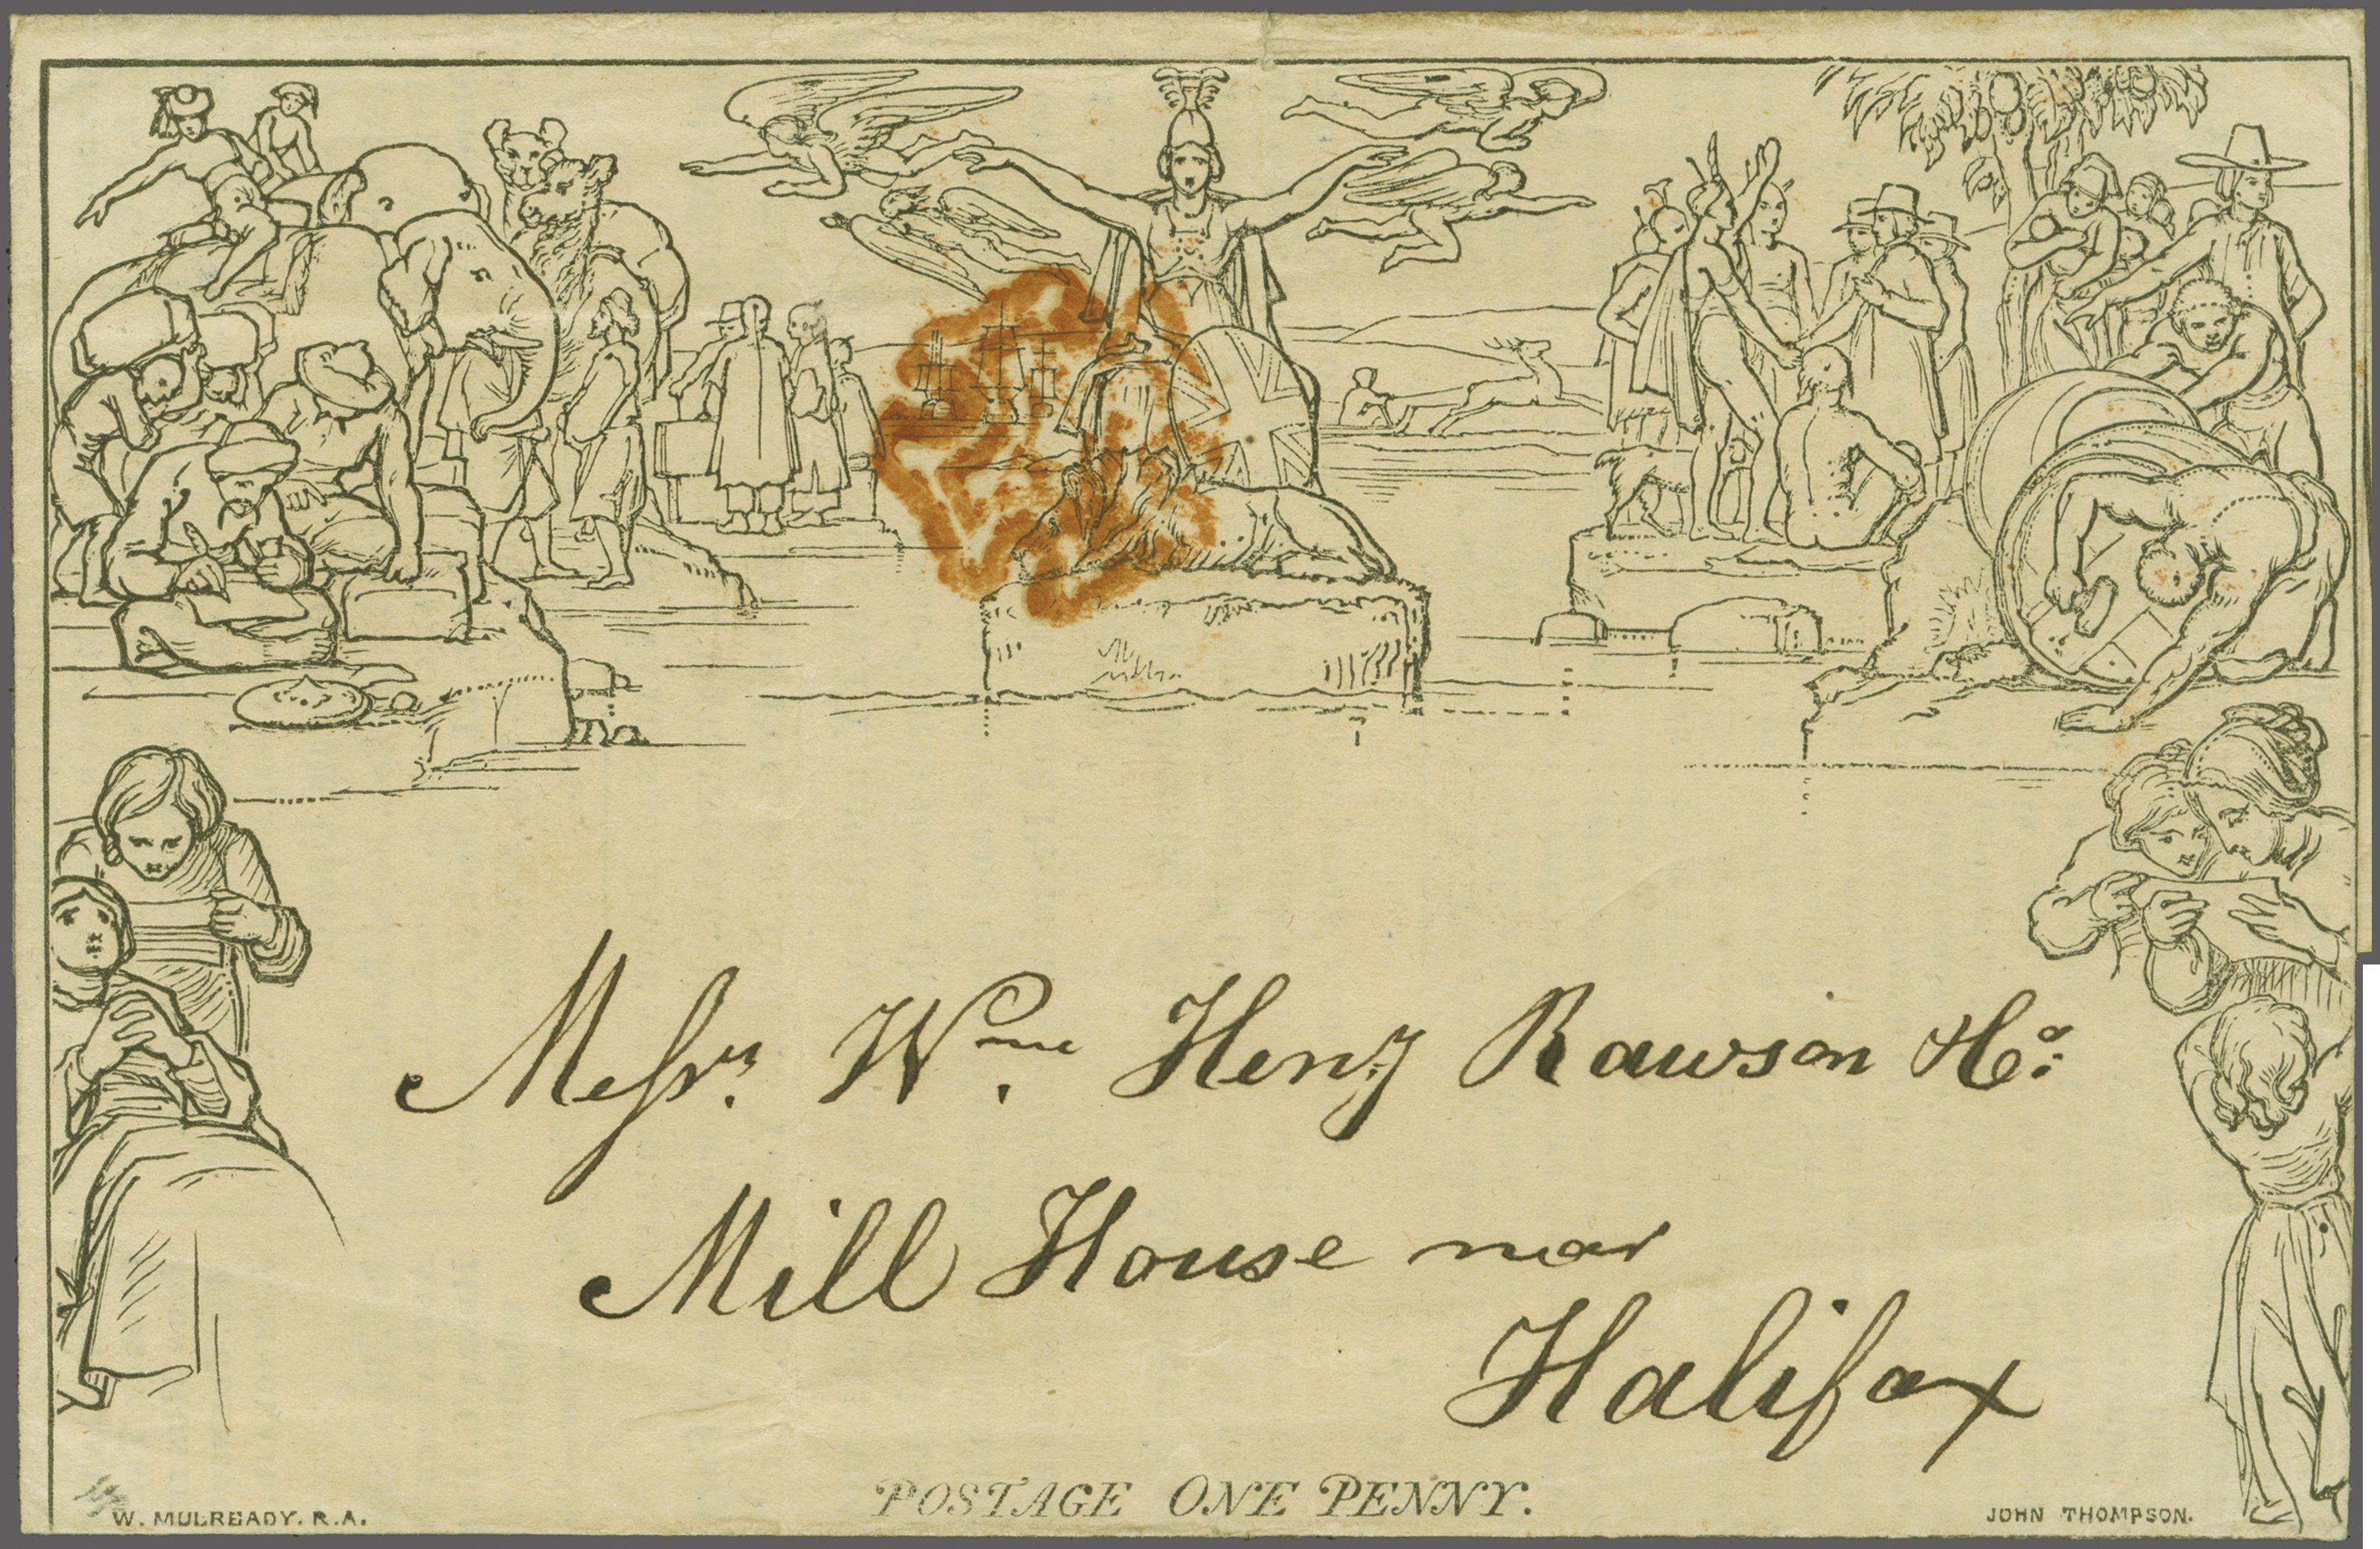 Messrs. Wm. Henry Rawson & Co:
Mill House near
Halifax
POSTAGE ONE PENNY.
W. MULREADY. R.A.
JOHN THOMPSON.